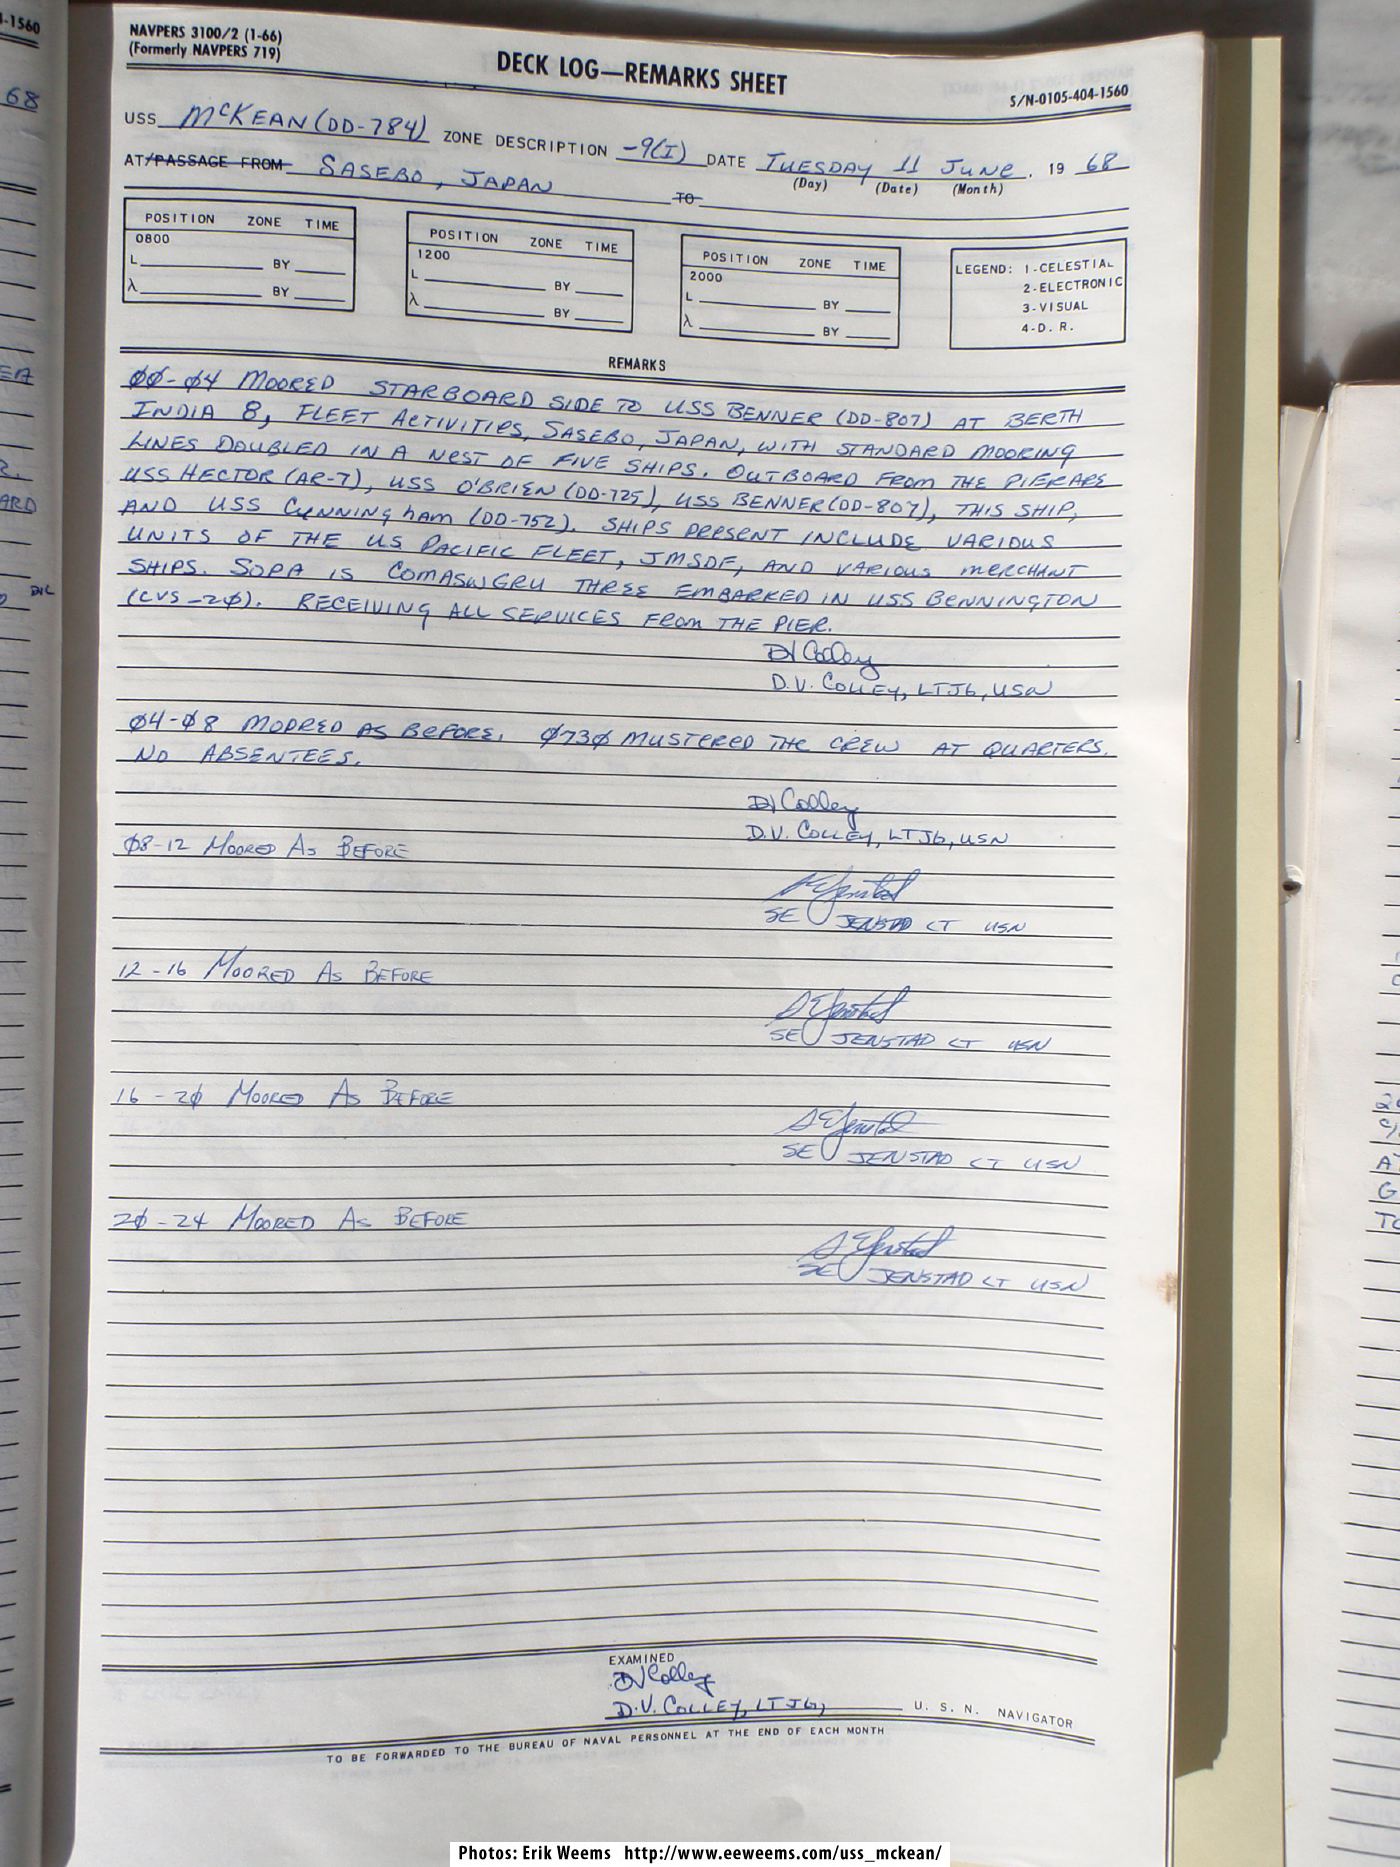 NAVPERS 3100/2 (1-66)
(Formerly NAVPERS 719)
DECK LOG—REMARKS SHEET
S/N-0105-404-1560
USS McKEAN (DD-784) ZONE DESCRIPTION -9(I) DATE TUESDAY 11 JUNE, 19 68
(Day) (Date) (Month)
AT/PASSAGE FROM SASEBO, JAPAN TO
POSITION ZONE TIME
0800
L BY
λ BY
POSITION ZONE TIME
1200
L BY
λ BY
POSITION ZONE TIME
2000
L BY
λ BY
LEGEND: 1-CELESTIAL
2-ELECTRONIC
3-VISUAL
4-D. R.
REMARKS
00-04 MOORED STARBOARD SIDE TO USS BENNER (DD-807) AT BERTH
INDIA 8, FLEET ACTIVITIES, SASEBO, JAPAN, WITH STANDARD MOORING
LINES DOUBLED IN A NEST OF FIVE SHIPS. OUTBOARD FROM THE PIER ARE
USS HECTOR (AR-7), USS O'BRIEN (DD-725), USS BENNER (DD-807), THIS SHIP,
AND USS CUNNINGHAM (DD-752). SHIPS PRESENT INCLUDE VARIOUS
UNITS OF THE US PACIFIC FLEET, JMSDF, AND VARIOUS MERCHANT
SHIPS. SOPA IS COMASWGRU THREE EMBARKED IN USS BENNINGTON
(CVS-20). RECEIVING ALL SERVICES FROM THE PIER.
DV Colley
D.V. COLLEY, LTJG, USN
04-08 MOORED AS BEFORE. 0730 MUSTERED THE CREW AT QUARTERS.
NO ABSENTEES.
DV Colley
D.V. COLLEY, LTJG, USN
08-12 MOORED AS BEFORE
SE Jenstad
SE JENSTAD LT USN
12-16 MOORED AS BEFORE
SE Jenstad
SE JENSTAD LT USN
16-20 MOORED AS BEFORE
SE Jenstad
SE JENSTAD LT USN
20-24 MOORED AS BEFORE
SE Jenstad
SE JENSTAD LT USN
EXAMINED
DV Colley
D.V. COLLEY, LTJG, U. S. N. NAVIGATOR
TO BE FORWARDED TO THE BUREAU OF NAVAL PERSONNEL AT THE END OF EACH MONTH
Photos: Erik Weems http://www.eeweems.com/uss_mckean/